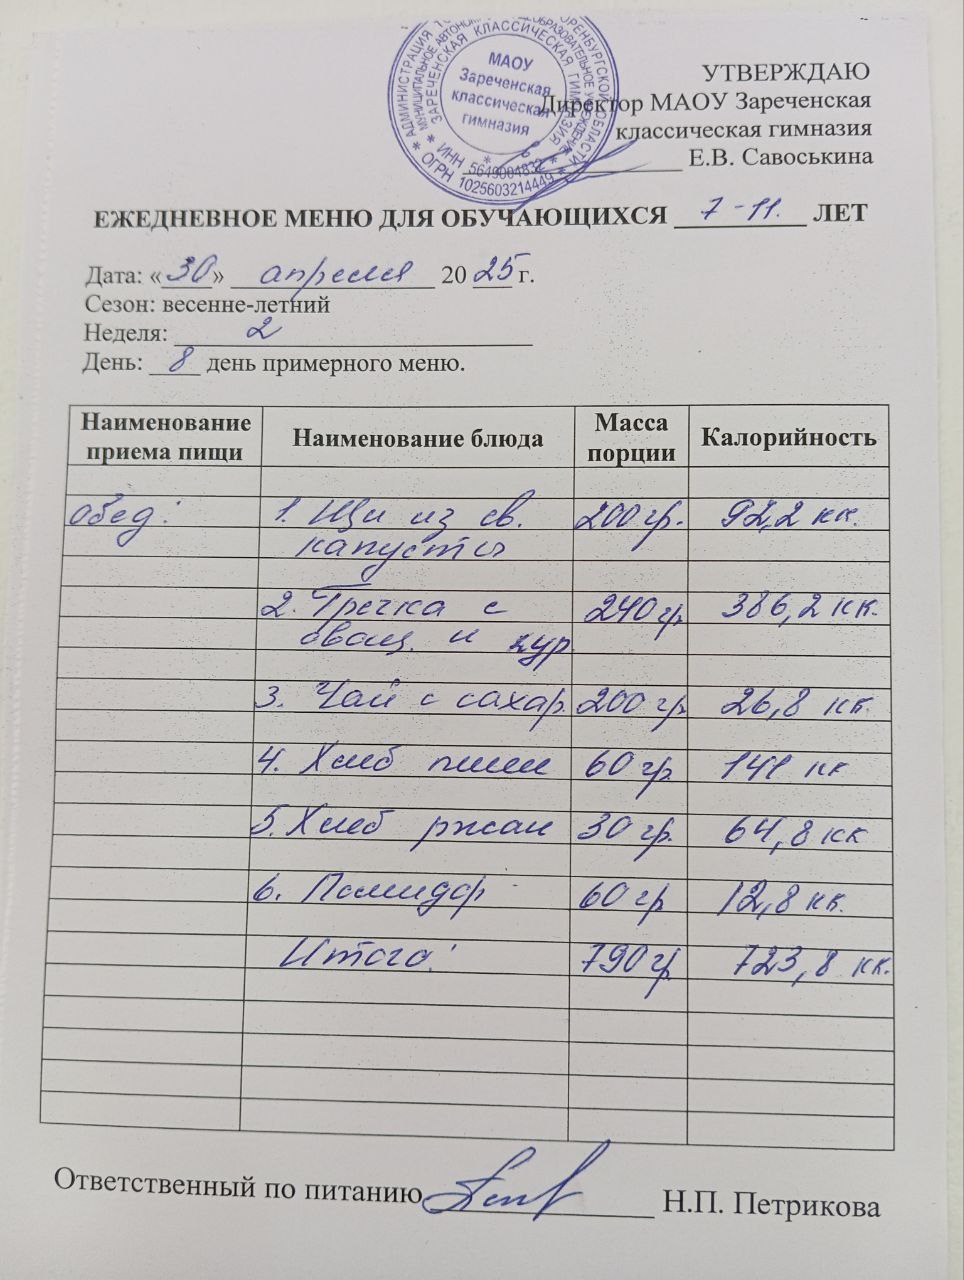 МАОУ
Зареченская
классическая
гимназия
ЗАРЕЧЕНСКАЯ КЛАССИЧЕСКАЯ ГИМНАЗИЯ
* ИНН 5649004832 *
* ОГРН 1025603214449 *
УТВЕРЖДАЮ
Директор МАОУ Зареченская
классическая гимназия
Е.В. Савоськина
ЕЖЕДНЕВНОЕ МЕНЮ ДЛЯ ОБУЧАЮЩИХСЯ 7-11. ЛЕТ
Дата: «30» апреля 2025 г.
Сезон: весенне-летний
Неделя: 2
День: 8 день примерного меню.
Наименование приема пищи Наименование блюда Масса порции Калорийность
обед: 1. Щи из св. 200 гр. 92,2 кк.
капусты
2. Гречка с 240 гр. 386,2 кк.
овощ. и кур.
3. Чай с сахар. 200 гр. 26,8 кк.
4. Хлеб пшен 60 гр. 141 кк
5. Хлеб ржан 30 гр. 64,8 кк
6. Помидор 60 гр 12,8 кк.
Итого: 790 гр 723,8 кк.
Ответственный по питанию Н.П. Петрикова